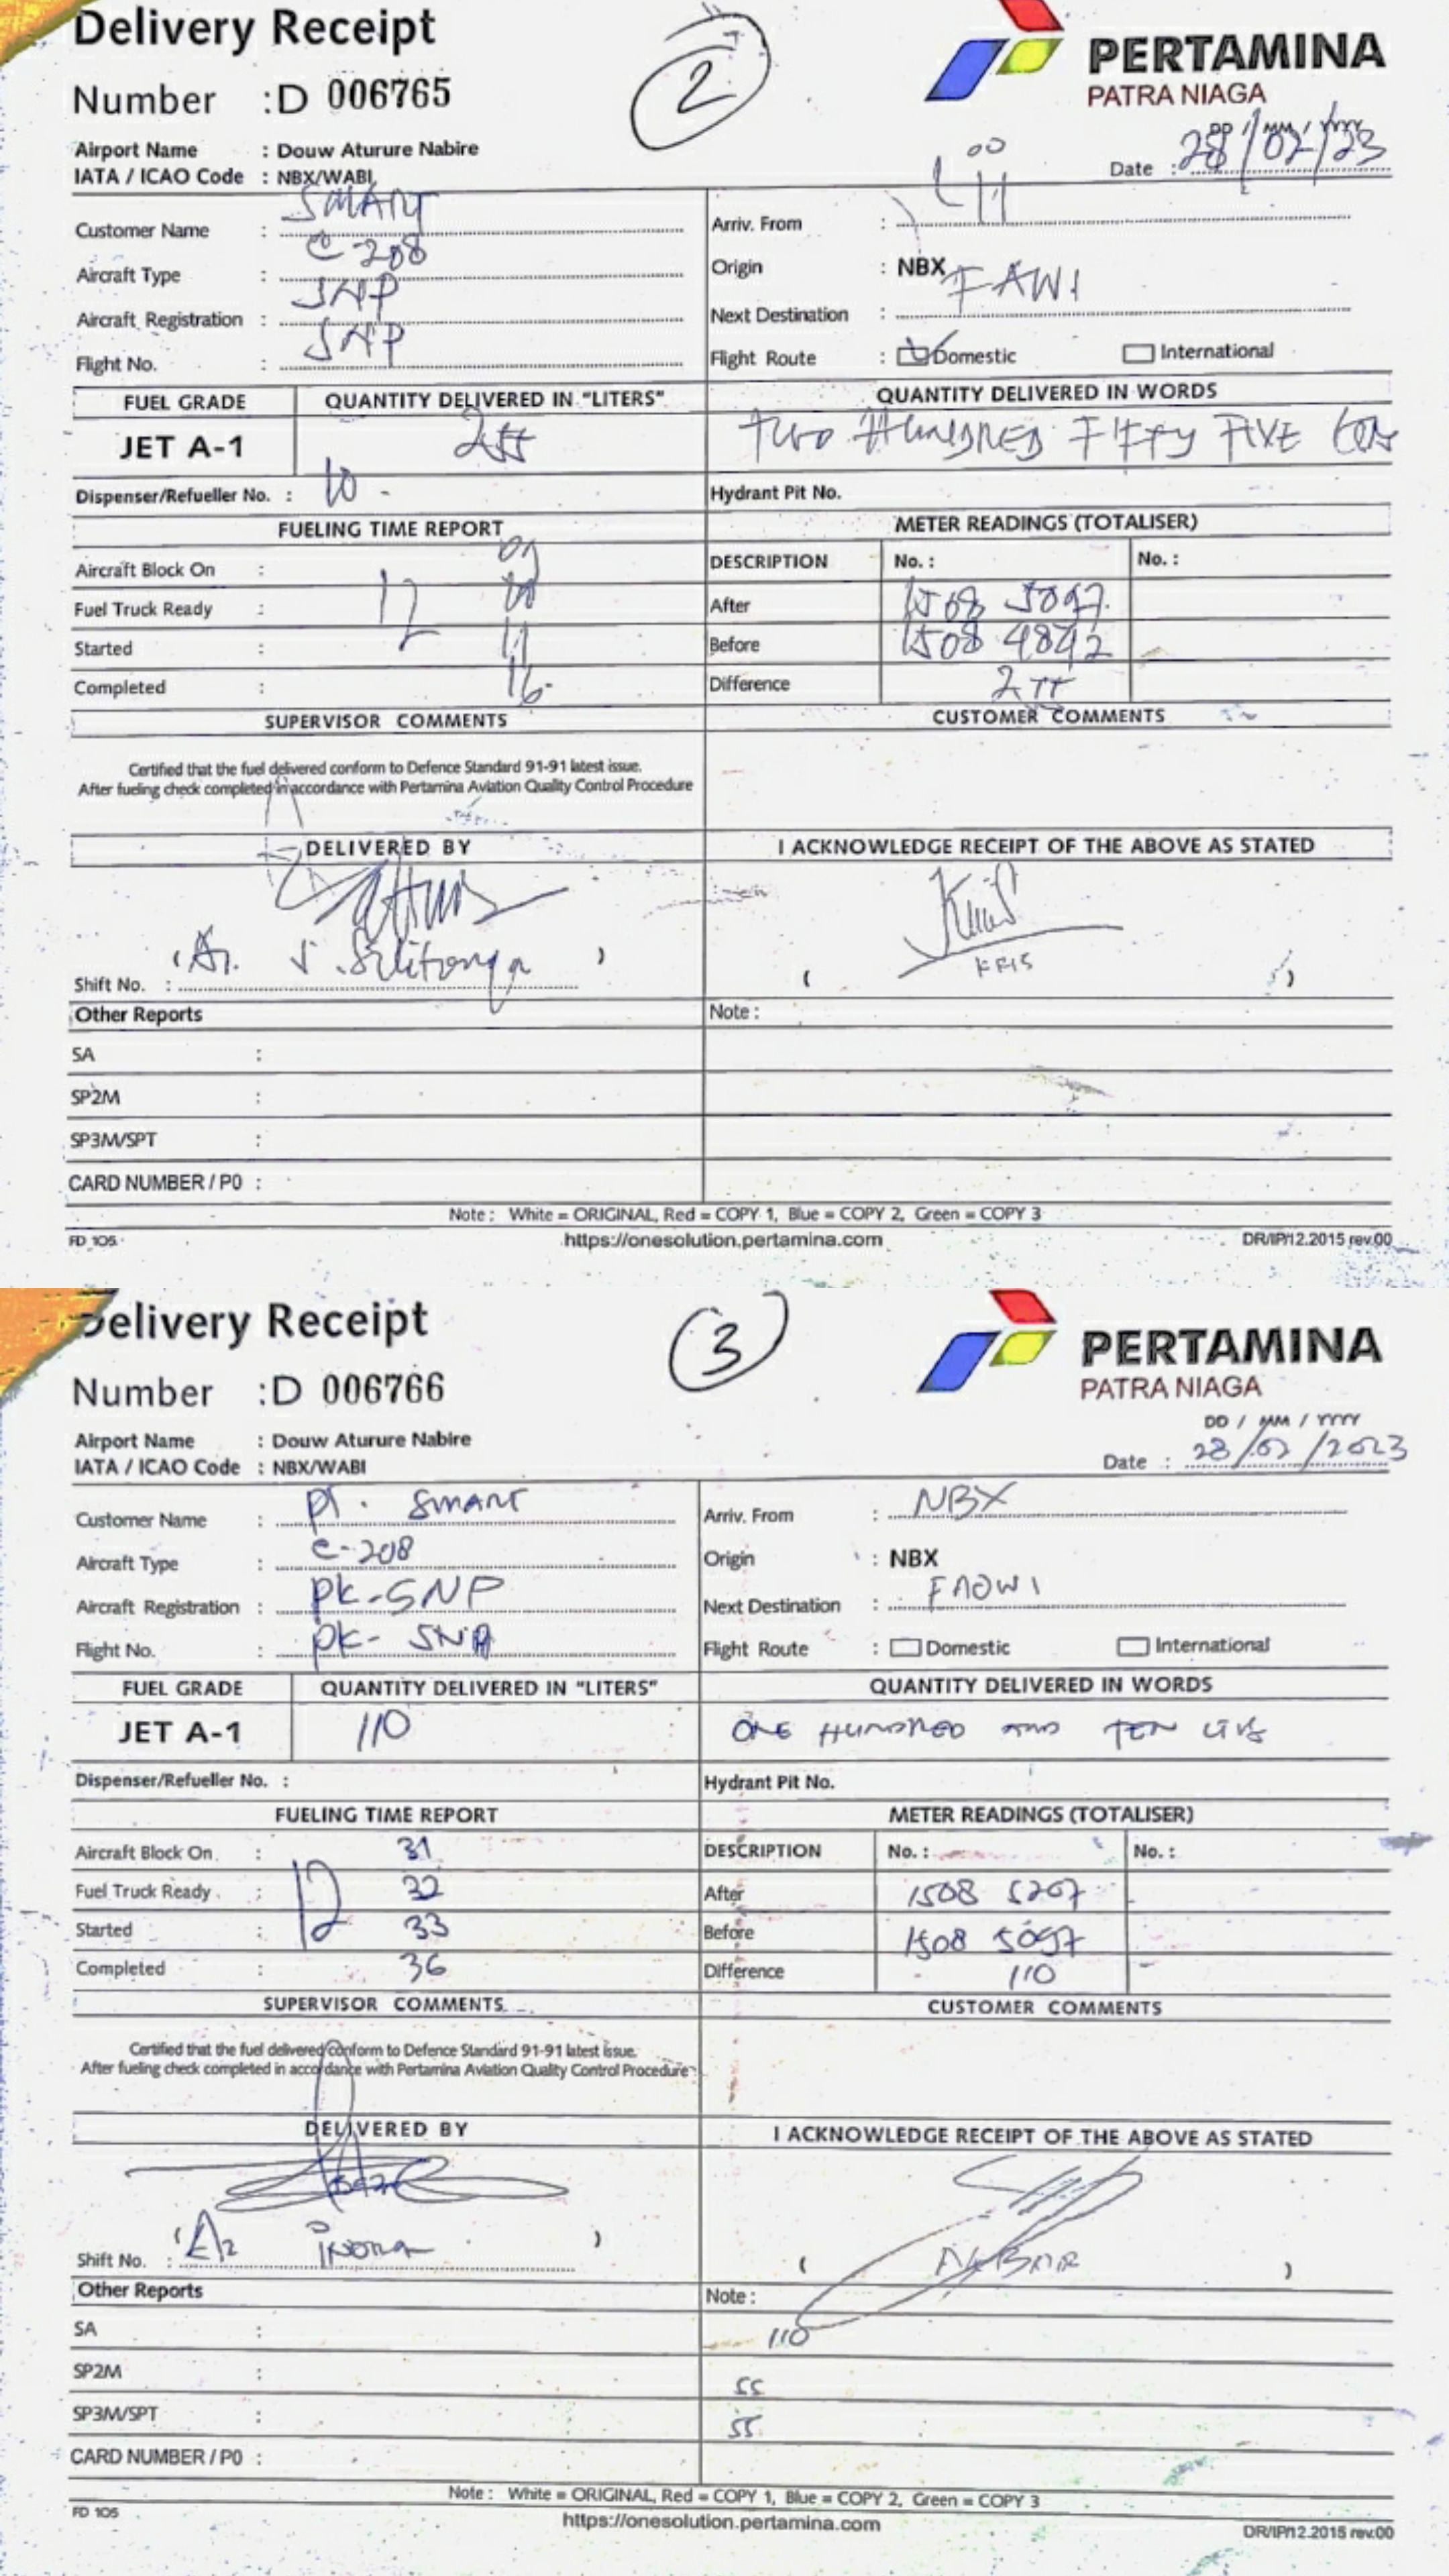 Delivery Receipt
2
PERTAMINA
PATRA NIAGA
Number :D 006765
DD / MM / YYYY
Date : 28/02/23
Airport Name : Douw Aturure Nabire
IATA / ICAO Code : NBX/WABI
Customer Name : SMART
Arriv. From :
Aircraft Type : C-208
Origin : NBX
Aircraft Registration : SNP
Next Destination : FAWI
Flight No. : SNP
Flight Route : Domestic International
FUEL GRADE QUANTITY DELIVERED IN "LITERS" QUANTITY DELIVERED IN WORDS
JET A-1 255 TWO HUNDRED FIFTY FIVE
Dispenser/Refueller No. : 10 -
Hydrant Pit No.
FUELING TIME REPORT
METER READINGS (TOTALISER)
Aircraft Block On : 09
DESCRIPTION No. : No. :
Fuel Truck Ready : 12 10
After 1508 5097
Started : 11
Before 1508 4842
Completed : 16
Difference 255
SUPERVISOR COMMENTS CUSTOMER COMMENTS
Certified that the fuel delivered conform to Defence Standard 91-91 latest issue.
After fueling check completed in accordance with Pertamina Aviation Quality Control Procedure
DELIVERED BY I ACKNOWLEDGE RECEIPT OF THE ABOVE AS STATED
KRIS
Shift No. : ( )
( )
Other Reports
Note :
SA :
SP2M :
SP3M/SPT :
CARD NUMBER / P0 :
Note : White = ORIGINAL, Red = COPY 1, Blue = COPY 2, Green = COPY 3
FD 105 https://onesolution.pertamina.com DR/IP/12.2015 rev.00
Delivery Receipt
3
PERTAMINA
PATRA NIAGA
Number :D 006766
DD / MM / YYYY
Date : 28/02/2023
Airport Name : Douw Aturure Nabire
IATA / ICAO Code : NBX/WABI
Customer Name : PT. SMART
Arriv. From : NBX
Aircraft Type : C-208
Origin : NBX
Aircraft Registration : PK-SNP
Next Destination : FAOWI
Flight No. : PK-SNP
Flight Route : Domestic International
FUEL GRADE QUANTITY DELIVERED IN "LITERS" QUANTITY DELIVERED IN WORDS
JET A-1 110 ONE HUNDRED AND TEN
Dispenser/Refueller No. :
Hydrant Pit No.
FUELING TIME REPORT
METER READINGS (TOTALISER)
Aircraft Block On : 31
DESCRIPTION No. : No. :
Fuel Truck Ready : 12 32
After 1508 5207
Started : 33
Before 1508 5097
Completed : 36
Difference 110
SUPERVISOR COMMENTS CUSTOMER COMMENTS
Certified that the fuel delivered conform to Defence Standard 91-91 latest issue.
After fueling check completed in accordance with Pertamina Aviation Quality Control Procedure
DELIVERED BY I ACKNOWLEDGE RECEIPT OF THE ABOVE AS STATED
Shift No. : ( A2 )
( )
Other Reports
Note :
SA :
110
SP2M :
55
SP3M/SPT :
55
CARD NUMBER / P0 :
Note : White = ORIGINAL, Red = COPY 1, Blue = COPY 2, Green = COPY 3
FD 105 https://onesolution.pertamina.com DR/IP/12.2015 rev.00